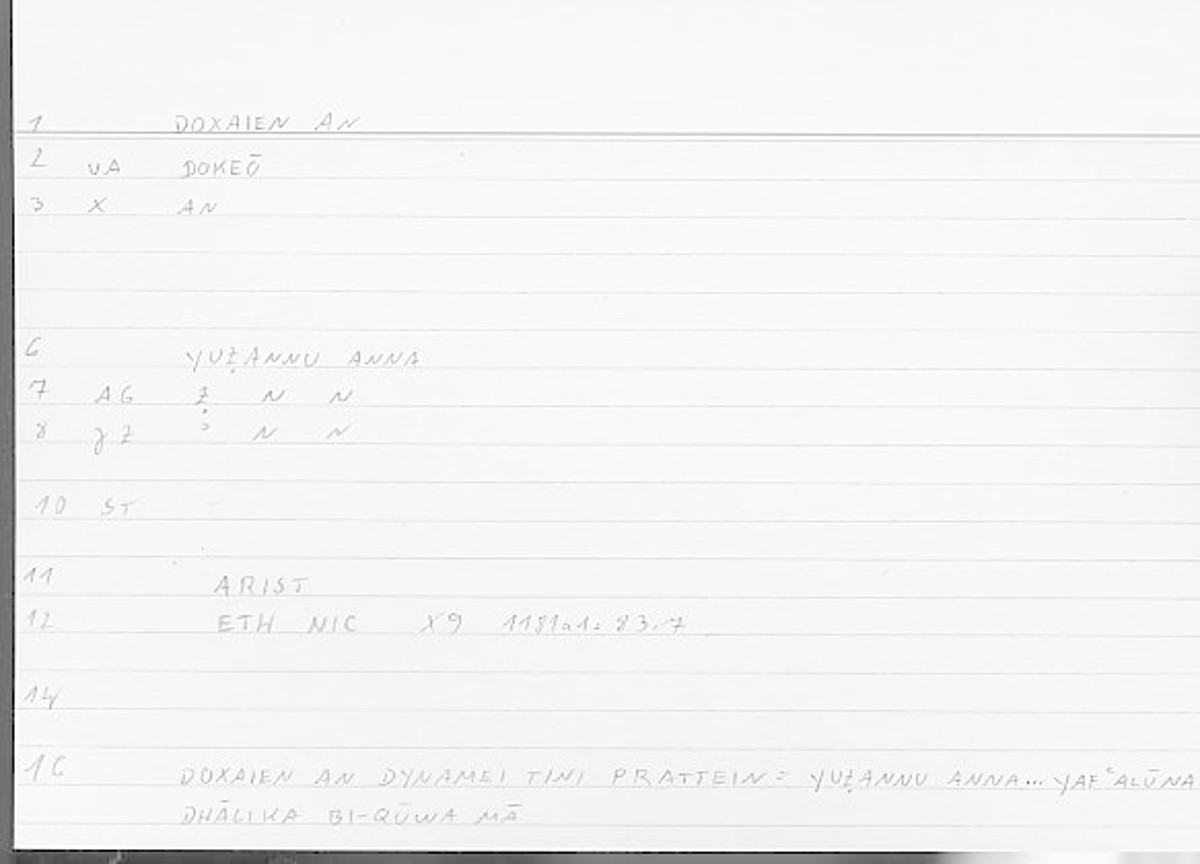 1 DOXAIEN AN
2 vA DOKEŌ
3 X AN
6 YUẒANNU ANNA
7 AG Ẓ N N
8 γZ ɔ N N
10 ST
11 ARIST
12 ETH NIC X9 1181a1: 83.7
14
16 DOXAIEN AN DYNAMEI TINI PRATTEIN = YUẒANNU ANNA... YAFʿALŪNA
DHĀLIKA BI-QŪWA MĀ